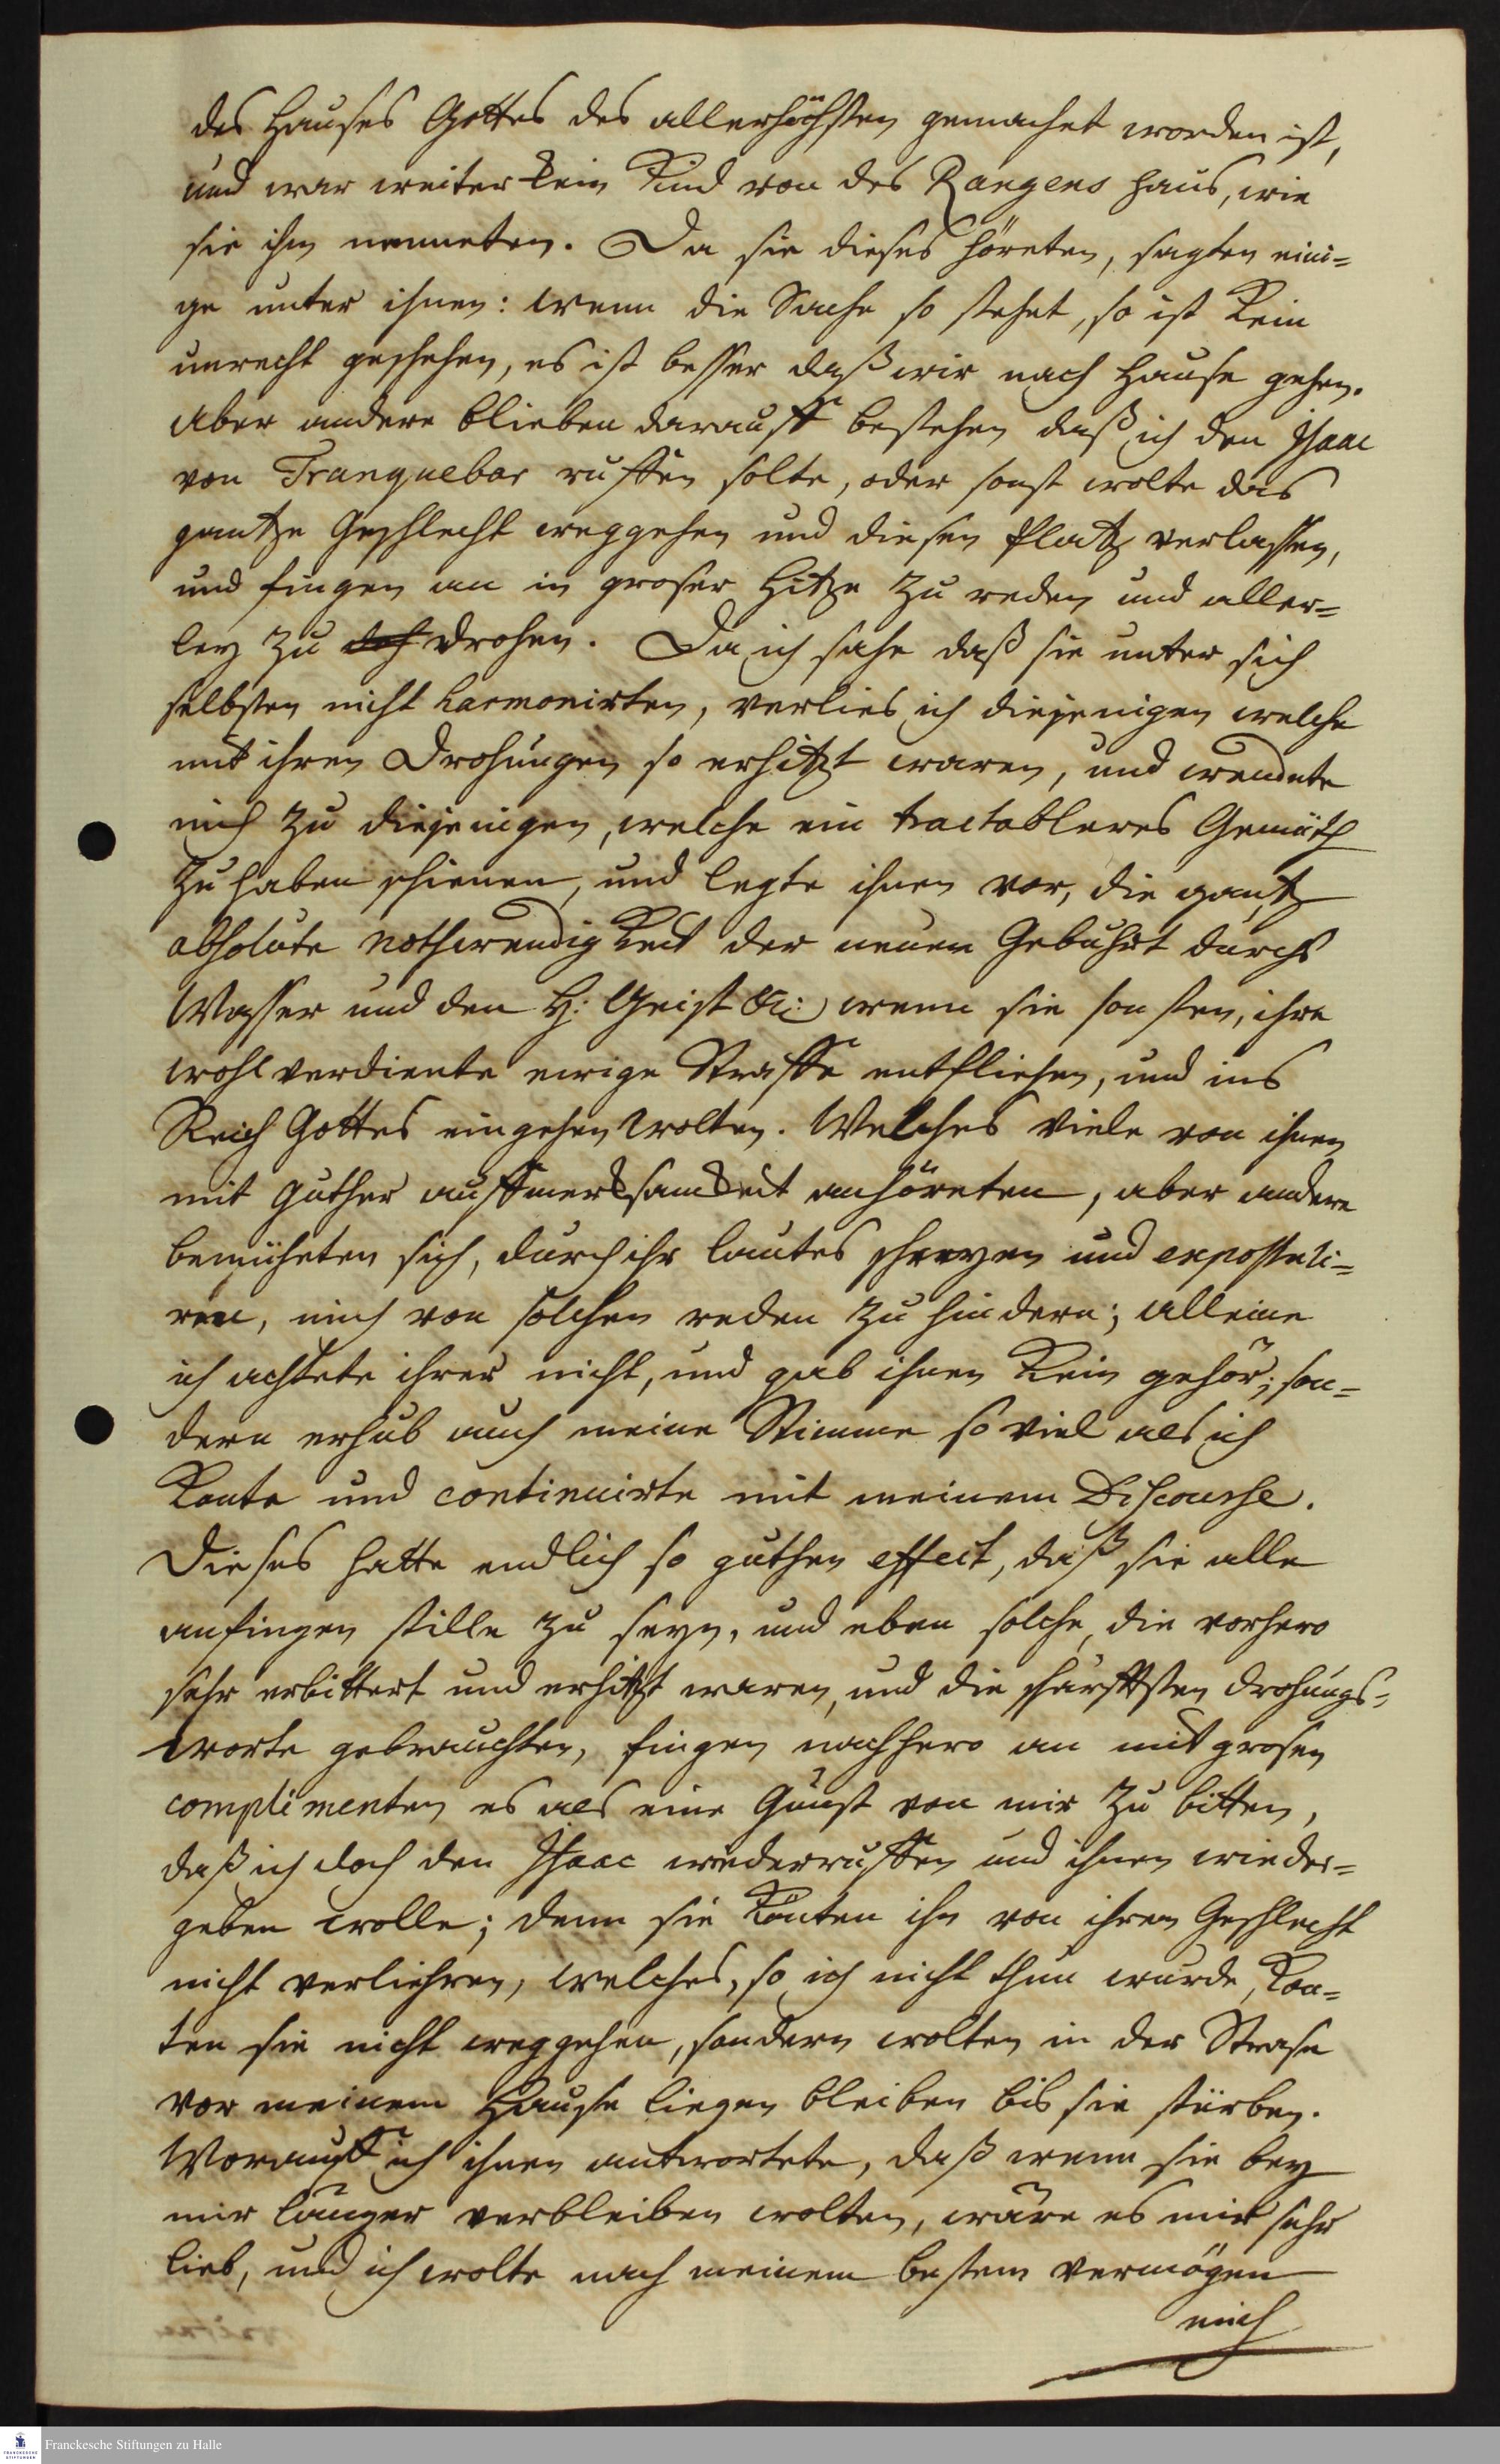 des Hauses Gottes des allerhöchsten gemachet worden ist,
und war weiter kein Kind von des Rangens Haus, wie
sie ihn nenneten. Da sie dieses höreten, sagten eini=
ge unter ihnen: wenn die Sache so stehet, so ist kein
unrecht geschehen, es ist besser daß wir nach Hause gehen.
Aber andere blieben darauff bestehen daß ich den Isaac
von Tranquebar ruffen solte, oder sonst wolte das
gantze Geschlecht weggehen und diesen Platz verlassen,
und fingen an in groser Hitze zu reden und aller=
ley zu drohen. Da ich sahe daß sie unter sich
selbsten nicht harmonirten, verlies ich diejenigen welche
mit ihren Drohungen so erhitzt waren, und wendete
mich zu diejenigen, welche ein tractableres Gemüth
zu haben schienen, und legte ihnen vor, die gantz
absolute nothwendigkeit der neuen Gebuhrt durchs
Wasser und den H: Geist &c: wenn sie sonsten, ihre
wohlverdiente ewige Straffe entfliehen, und ins
Reich Gottes eingehen wolten. Welches viele von ihnen
mit guther auffmerksamkeit anhöreten, aber andere
bemüheten sich, durch ihr lautes schreyen und expostuli=
ren, mich von solchen reden zu hindern; alleine
ich achtete ihrer nicht, und gab ihnen kein gehör; son=
dern erhub auch meine Stimme so viel als ich
konte und continuirte mit meinem Discourse.
Dieses hatte endlich so guthen effect, daß sie alle
anfingen stille zu seyn, und eben solche, die vorhero
sehr erbittert und erhitzt waren, und die schärffsten drohungs=
worte gebrauchten, fingen nachhero an mit grosen
complimenten es als eine Gunst von mir zu bitten,
daß ich doch den Isaac wiederruffen und ihnen wieder=
geben wolle; denn sie könten ihn von ihren Geschlecht
nicht verliehren, welches, so ich nicht thun wurde, kon=
ten sie nicht weggehen, sondern wolten in der Strase
vor meinem Hause liegen bleiben bis sie stürben.
Worauff ich ihnen antwortete, daß wenn sie bey
mir länger verbleiben wolten, wäre es mir sehr
lieb, und ich wolte nach meinem bestem vermögen
mich
Franckesche Stiftungen zu Halle